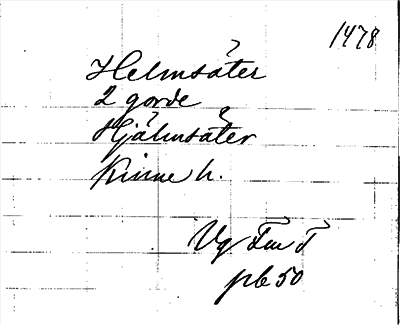 1478
Helmsäter
2 gorde
Hjälmsäter
Kinne h.
Vg Fm T
pb 50